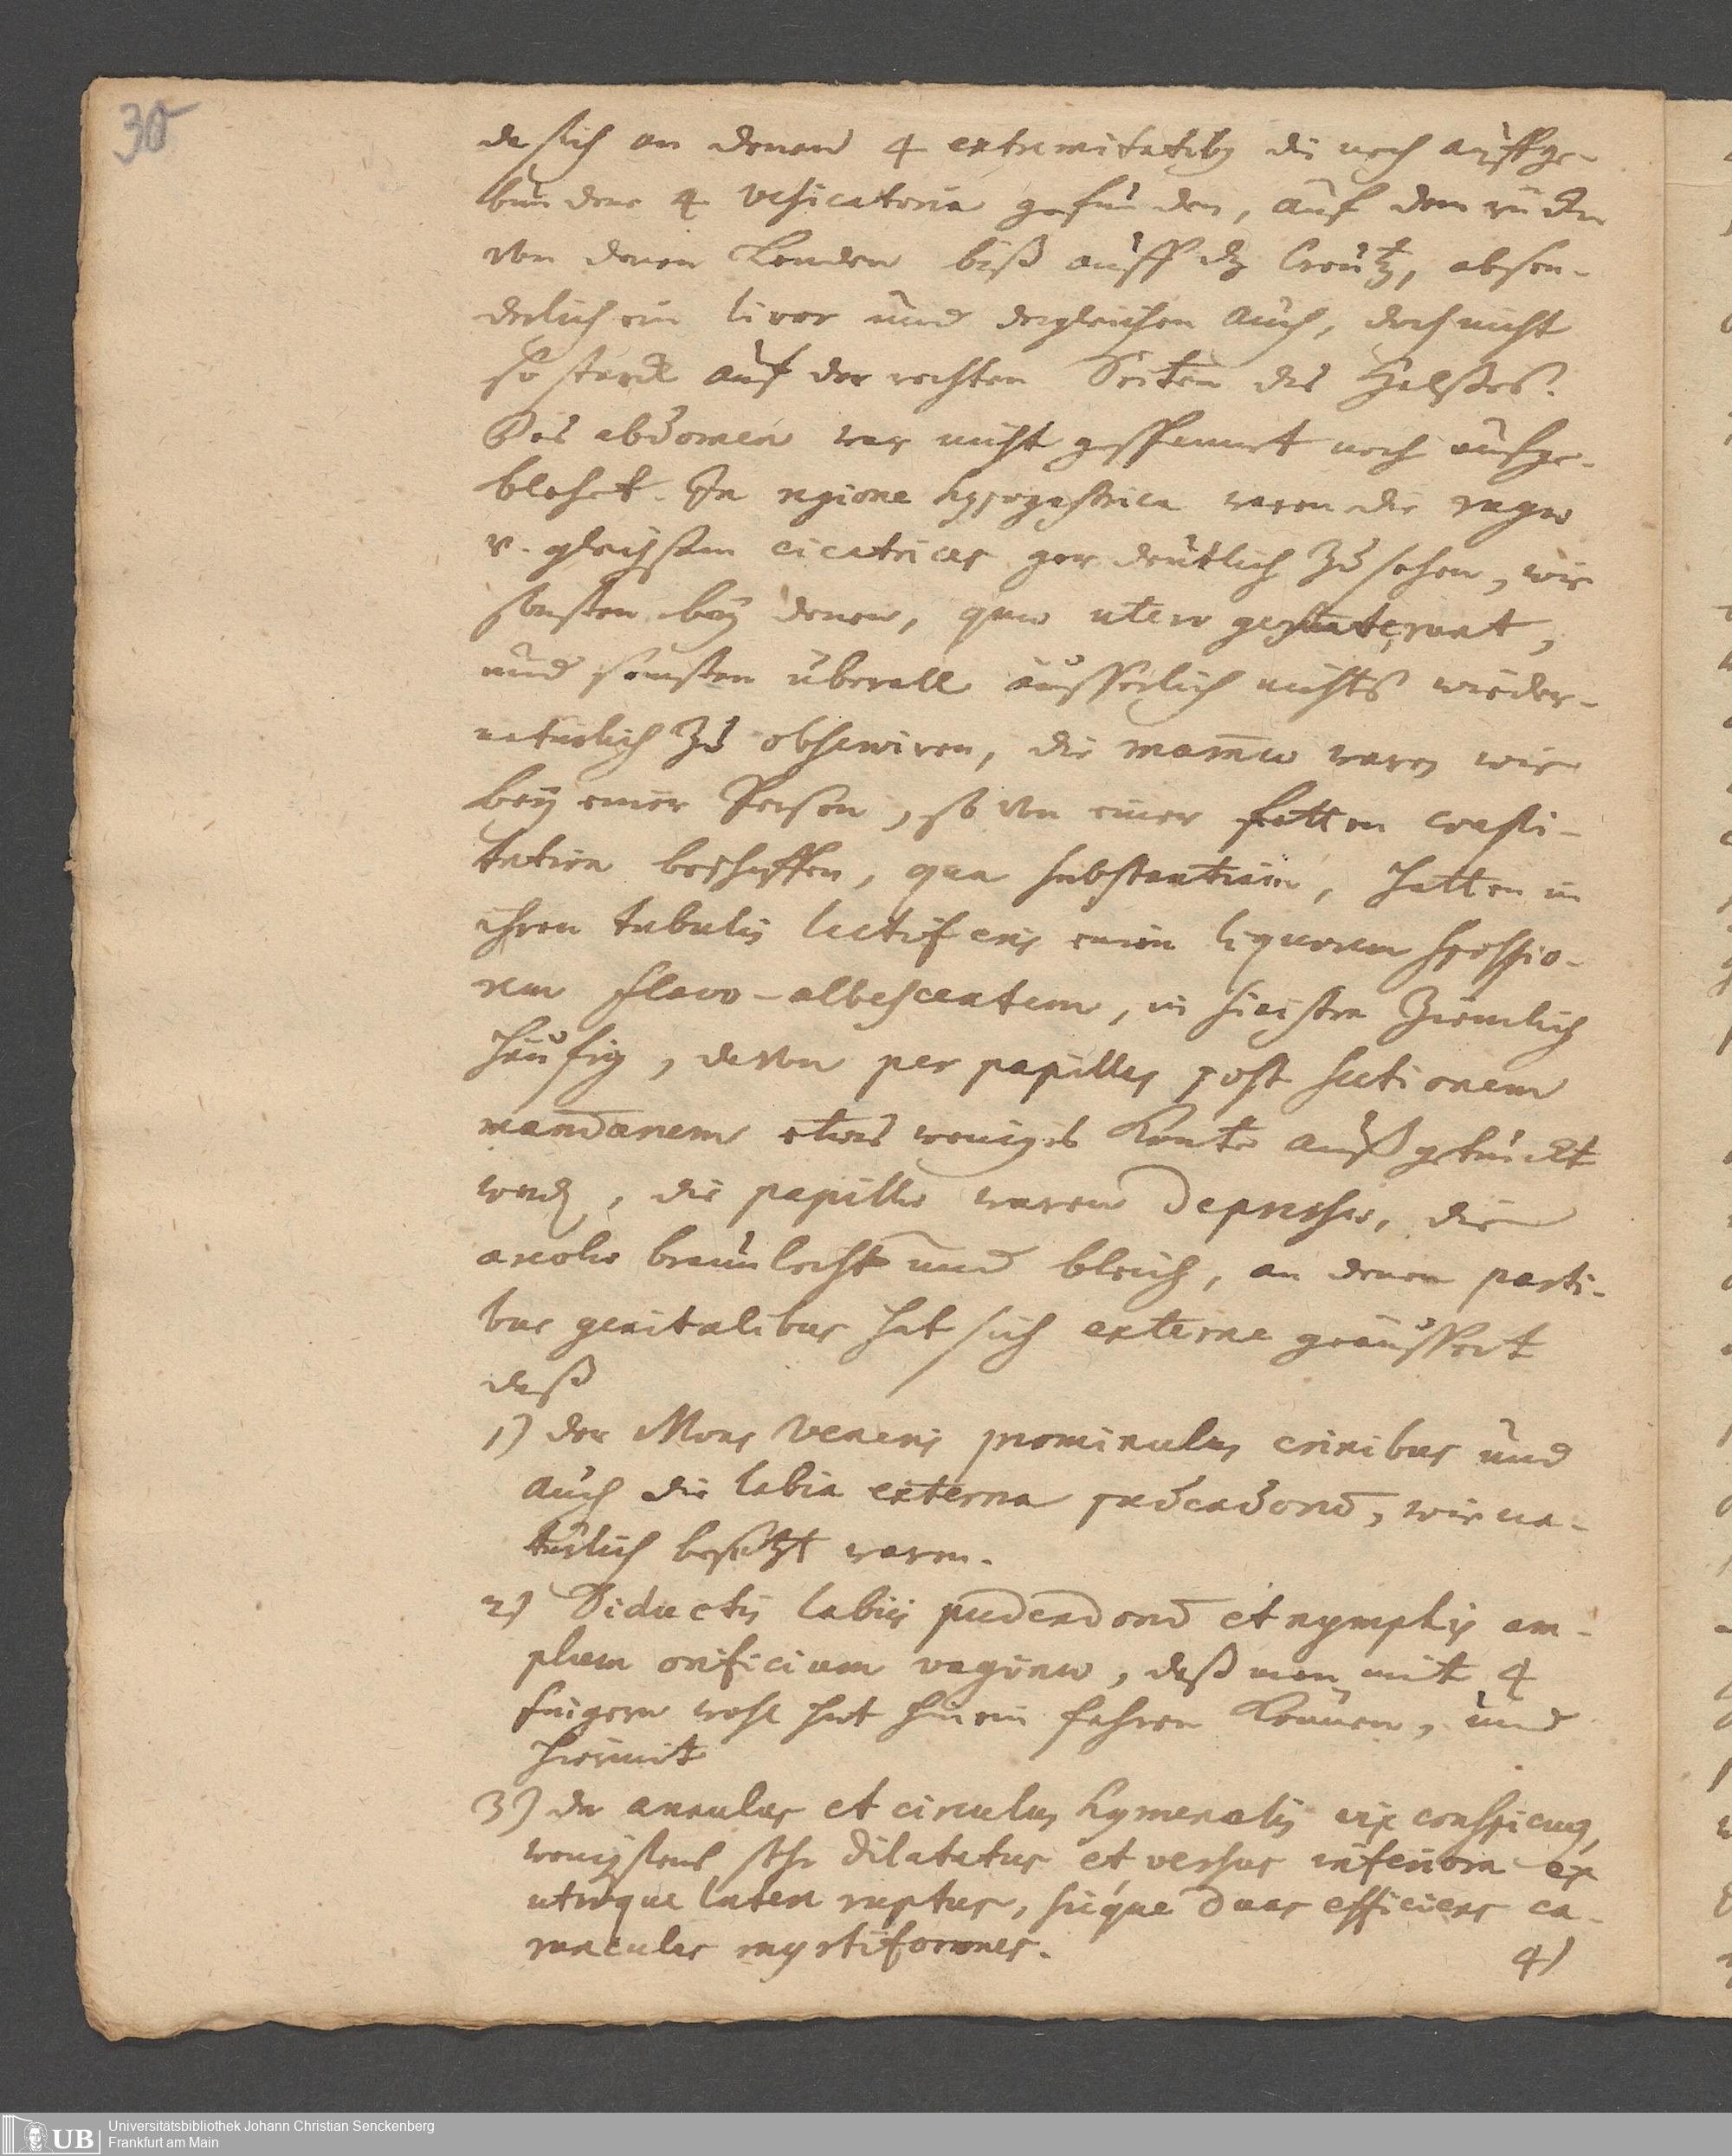 30
da sich an denen 4 extremitatibq die noch auffge-
bundene 4 vesicatoria gefunden, auf dem rücken
von denen Lenden biß auff dz Creütz, abson-
derlich ein livor und dergleichen auch, doch nicht
so starck auf der rechten Seiten des Halßes.
Das abdomen war nicht gespannet noch aufge-
blehet. In regione hypogastrica waren die rugæ
v. gleichsam cicatrices gar deütlich zu sehen, wie
sonsten bey denen, quæ utero gestaverunt,
und sonsten überall äusserlich nichts wieder-
natürlich zu observiren, die mam̄æ waren wie
bey einer Person, so von einer fetten consti-
tution beschaffen, qua substantiam, hatten in
ihren tubulis lactiferis einen liquorem spissio-
rem flavo-albescentem, in sinistra ziemlich
häufig, davon per papillas post sectionem
mam̄arum etwas weniges konte außgetruckt
werden, die papillæ waren depressæ, die
areolæ braunlecht und bleich, an denen parti-
bus genitalibus hat sich externe geäussert
daß
1) der Mons Veneris prominulus crinibus und
auch die labia externa pudendorum, wie na-
türlich besetzt waren.
2) Diductis labiis pudendorum et nymphis am-
plum orificium vaginæ, daß man mit 4
fingern wohl hat hinein fahren können, und
hiermit
3) der annulus et circulus hymenalis vix conspicuus,
wenigstens sehr dilatatus et versus inferiora ex
utroque latere ruptus, sicque duas efficiens ca-
runculas myrtiformes.
4)
Universitätsbibliothek Johann Christian Senckenberg
Frankfurt am Main
UB